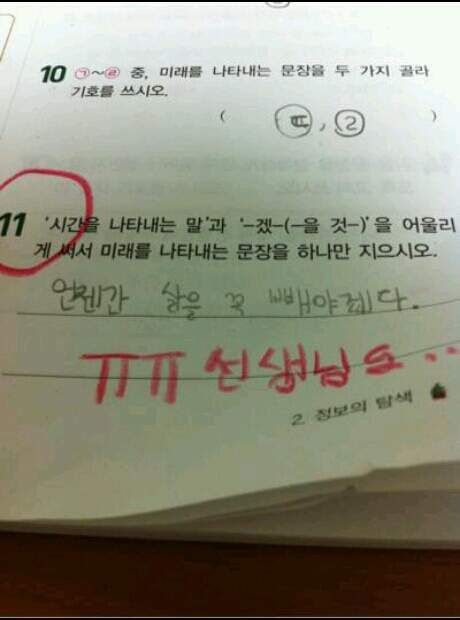 10 ㉠~㉣ 중, 미래를 나타내는 문장을 두 가지 골라
기호를 쓰시오.
( ㉢, ㉣ )
11 '시간을 나타내는 말'과 '-겠-(-을 것-)'을 어울리
게 써서 미래를 나타내는 문장을 하나만 지으시오.
언젠간 살을 꼭 빼야게다.
ㅠㅠ 선생님도..
2 정보의 탐색